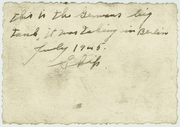 this is the Germans big
tank, it was taking in Berlin
July 1945.
Skip